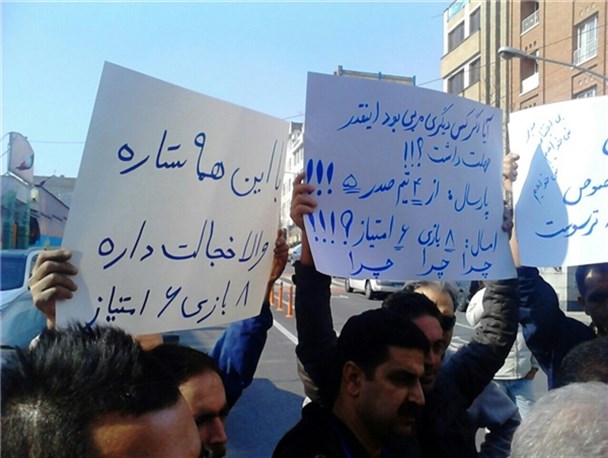 با این همه ستاره
والا خجالت داره
۸ بازی ۶ امتیاز
آیا اگر کس دیگری مربی بود اینقدر
مهلت داشت؟!!
پارسال: از ۴ تیم صدر ۵ !!!
امسال: ۸ بازی ۶ امتیاز؟!!!
چرا چرا چرا